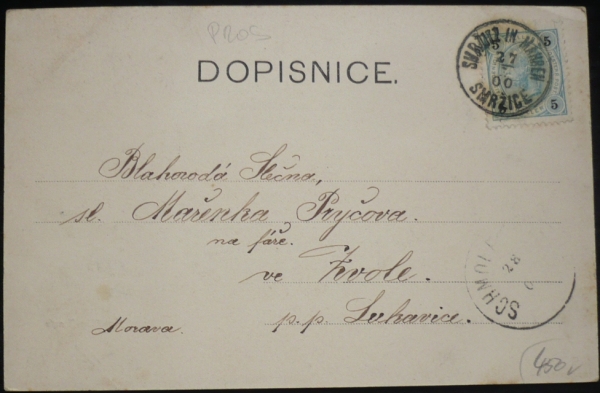 PROS
DOPISNICE.
SMRŽITZ IN MÄHREN
27
00
SMRŽICE
5 5
5
Blahorodá Slečna,
sl. Mařenka Pryčova.
na fáře.
ve Zvole.
Morava. p.p. Lukavice.
28
SCHMOLE
450